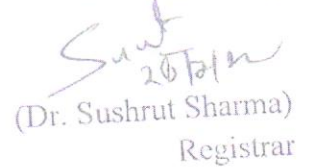 (Dr. Sushrut Sharma)
Registrar